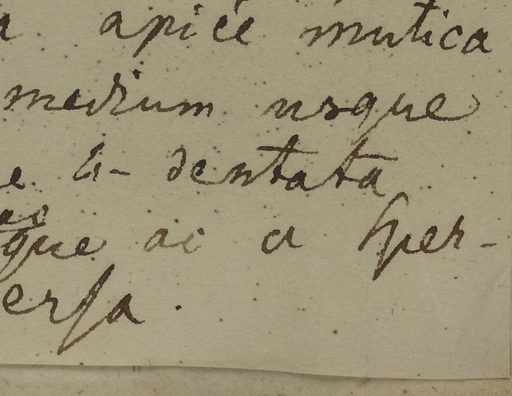 a apice mutica
medium usque
e 4-dentata
que ac a Sper-
ersa.